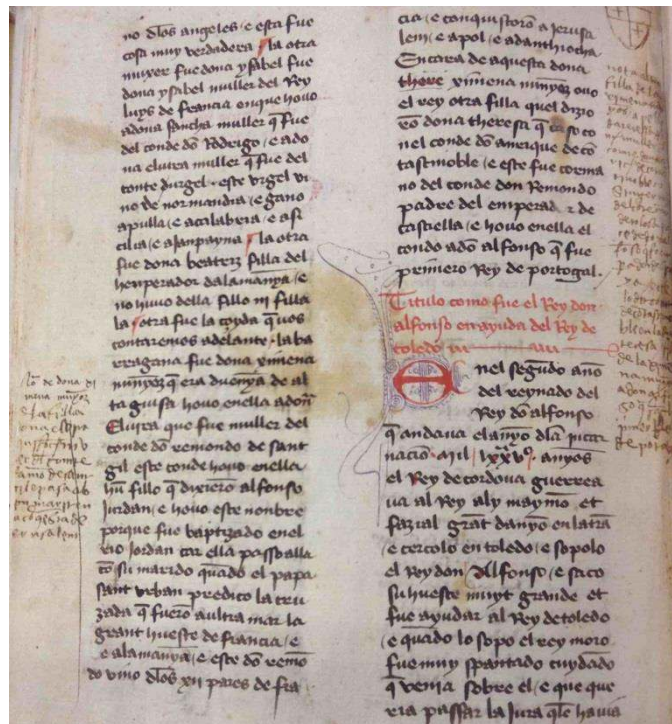 no dlos angeles / e esta fue
cosa muy verdadera / la otra
muxer fue dona ysabel fue
dona ysabel muller del Rey
luys de francia en que hovo
a dona sancha muller q̄ fue
del conde dō Rodrigo / e a do
na elvira muller q̄ fue del
conte durgel · este urgel vi
no de normandia / e gano
apulla / e a calabria / e a si
cilia / e a janpayna / la otra
fue dona beatriz filla del
henperador dalamanya / e
no huvo della fillo nj filla
la otra fue la çayda q̄ vos
contaremos adelante · la ba
rragana fue dona ximena
munyoz q̄ era duenya de al
ta guisa hovo en ella a dona
Elvira que fue muller del
conde dō remondo de sant
gil este conde hovo en ella
hū fillo q̄ dixierō alfonso
jurdan / e hovo este nonbre
porque fue baptizado en el
rio jordan car ella passo alla
cō su marido quādo el papa
sant urban predico la cru
zada q̄ fuerō a ultra mar la
grant hueste de francia / e
e alamanya / e este dō remō
do vino dlos xii pares de fra
cia / e conquistorō a jerusa
lem / e a pol / e ad anthiocha
Encara de aquesta dona
there ximena munyoz ovo
el rey otra filla quel dizie
rō dona theresa q̄ caso co
nel conde dō amrique de cō
tastinoble / e este fue corma
no del conde don Remondo
padre del emperador de
castiella / e hovo en ella el
conde a dō alfonso q̄ fue
primero Rey de portogal ·
Titulo como fue el Rey don
alfonso en ayuda del Rey de
toledo
En el segūdo ano
del reynado del
Rey dō alfonso
q̄ andava el anyo dla incar
nacio mil · lxxvº · anyos
el Rey de cordova guerrea
va al Rey aly maymō et
fazial grāt danyo en la trā
e cercolo en toledo / e sopolo
el Rey don Alfonso / e saco
su hueste muyt grande et
fue ayudar al Rey de toledo
e quādo lo sopo el rey moro
fue muy spantado cuydādo
q̄ venia sobre el / e que que
ria passar la jura q̄le havia